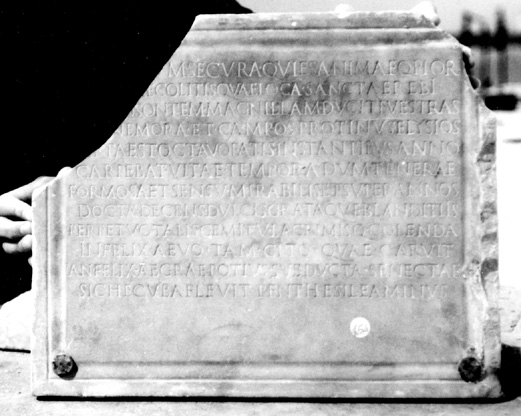 M SECVRA QVIES ANIMAEQ PIOR
COLITIS QVAE LOCA SANCTA EREBI
ONTEM MAGNILLAM DVCITE VESTRAS
NEMORA ET CAMPOS PROTINVS ELYSIOS
EST OCTAVO FATIS INSTANTIBVS ANNO
CARPEBAT VITAE TEMPORA DVM TENERAE
FORMOSA ET SENSV MIRABILIS ET SVPER ANNOS
DOCTA DECENS DVLCIS GRATAQVE BLANDITIIS
PERPETVO TALIS GEMITV LACRIMISQ COLENDA
INFELIX AEVO TAM CITO QVAE CARVIT
AN FELIX AEGRAE POTIVS SVBDVCTA SENECTAE
SIC HECVBA FLEVIT PENTHESILEA MINVS